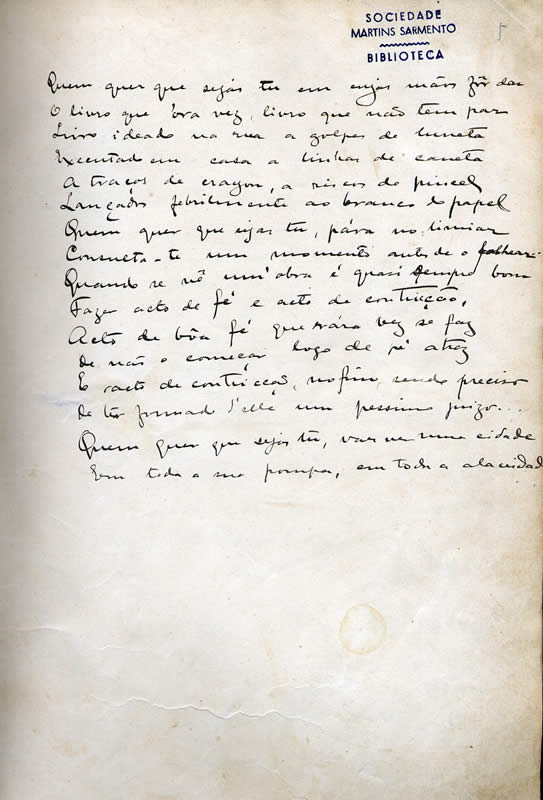 SOCIEDADE
MARTINS SARMENTO
BIBLIOTECA
Quem quer que sejas tu em cujas mãos fôr dar
O livro que ora vez, livro que não tem par
Livro ideado na rua a golpes de luneta
Executado em casa a linhas de caneta
A traços de crayon, a riscos de pincel
Lançados febrilmente ao branco do papel
Quem quer que sejas tu, pára no limiar
Consulta-te um momento antes de o folhear.
Quando se vê um'obra é quasi sempre bom
Fazer acto de fé e acto de contricção,
Acto de bôa fé que rara vez se faz
De não o começar logo de ré atraz
E acto de contricção, no fim, sendo preciso
De ter formado d'elle um pessimo juizo...
Quem quer que sejas tu, vaes ver uma cidade
Em toda a sua pompa, em toda a alacridad